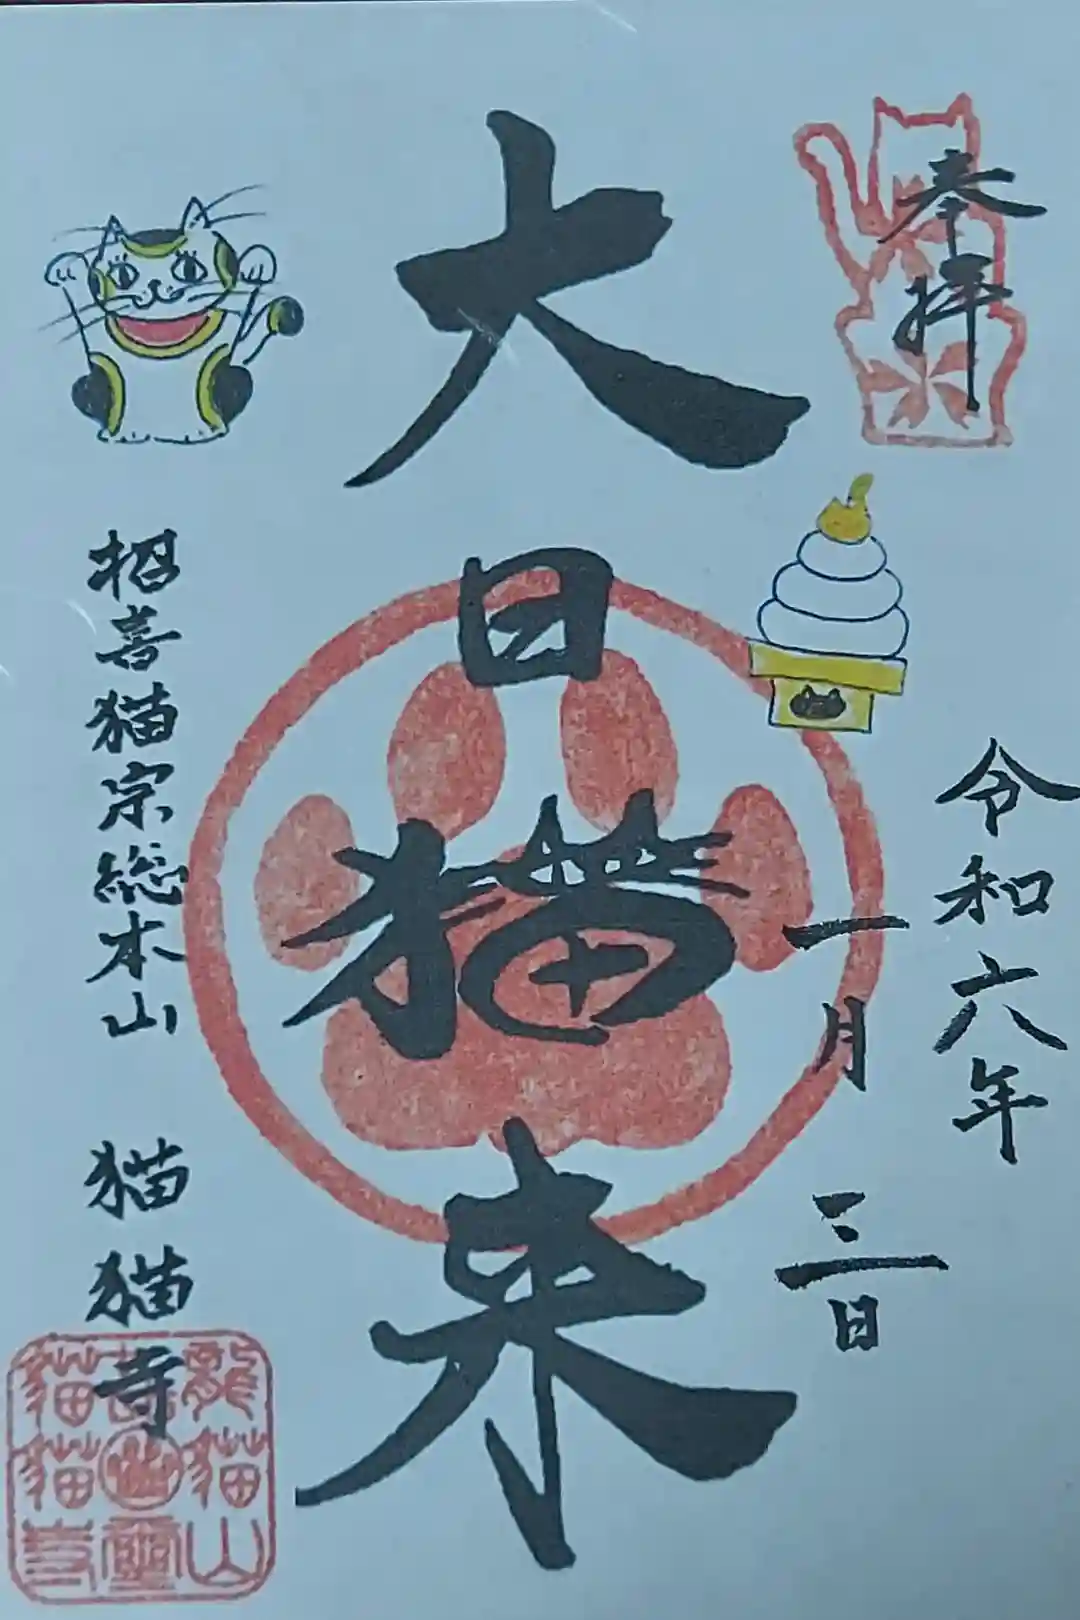 奉拝
令和六年
一月三日
大日猫来
招喜猫宗総本山
猫猫寺
龍猫山
猫猫寺